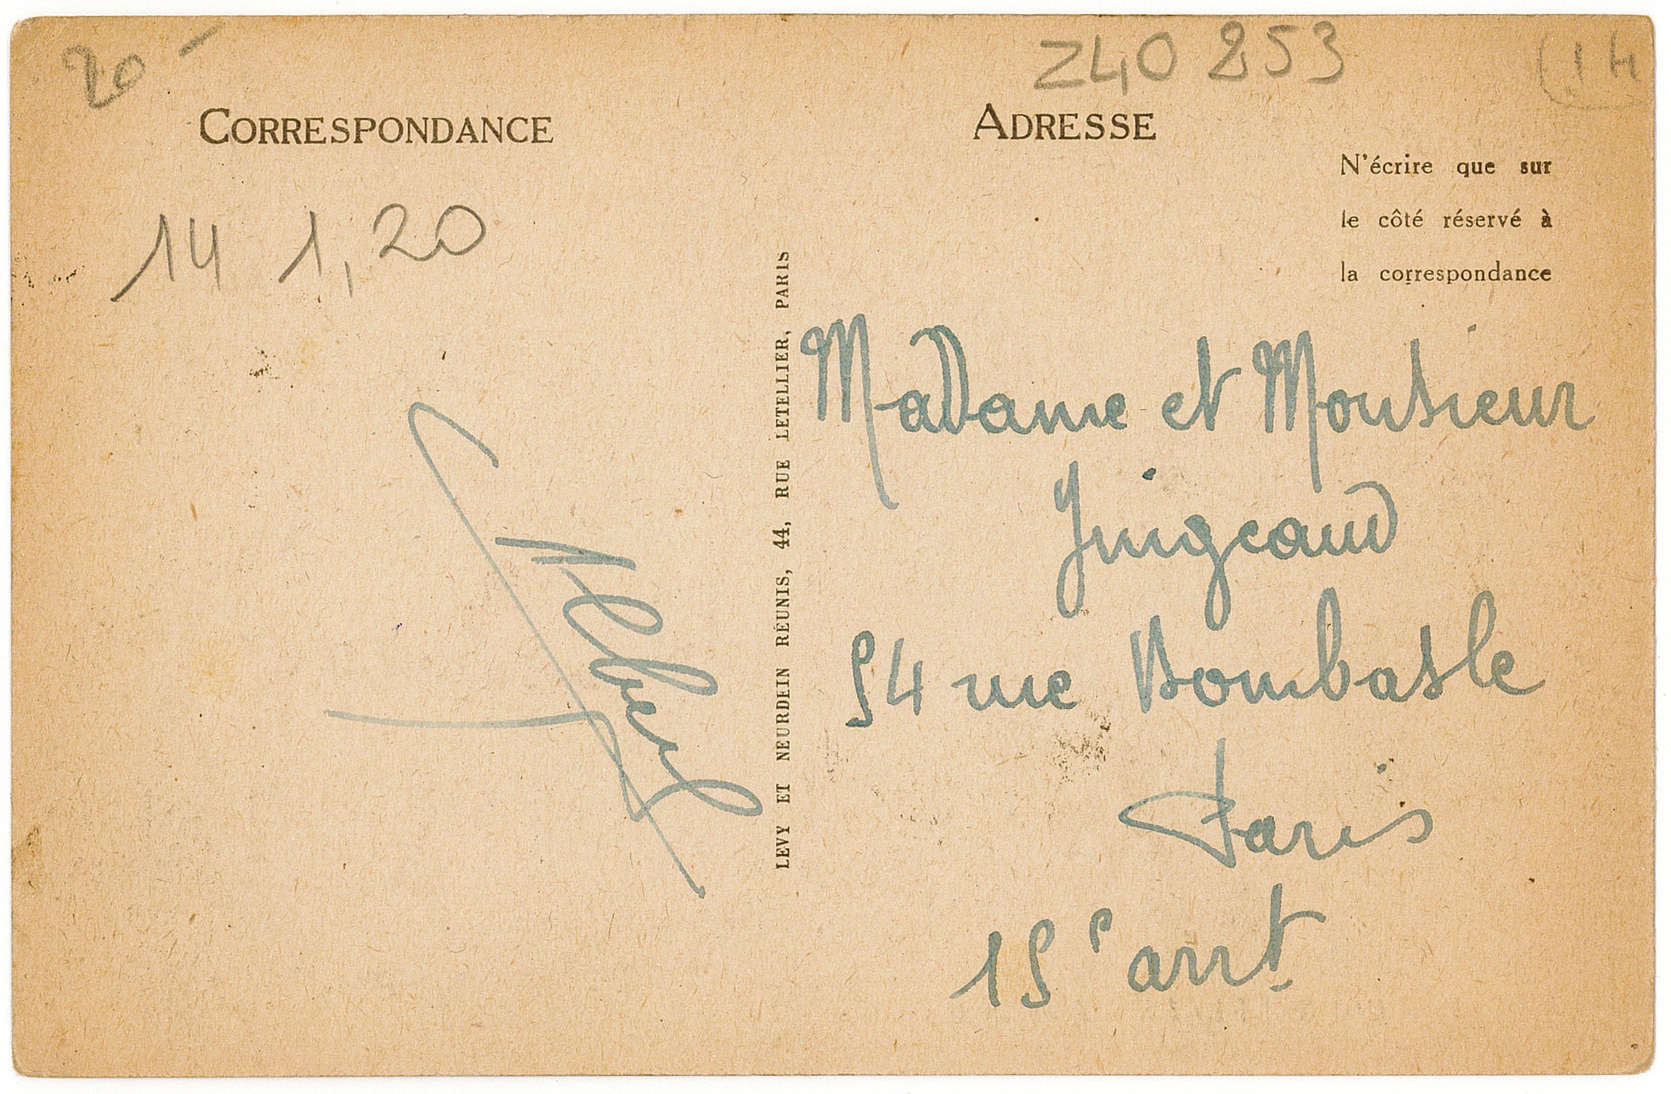 20 -
Z40 253
(14
CORRESPONDANCE
14 1,20
Albert
LEVY ET NEURDEIN RÉUNIS, 44, RUE LETELLIER, PARIS
ADRESSE
N'écrire que sur
le côté réservé à
la correspondance
Madame et Monsieur
54 rue Bombasle
Paris
15e arrt.